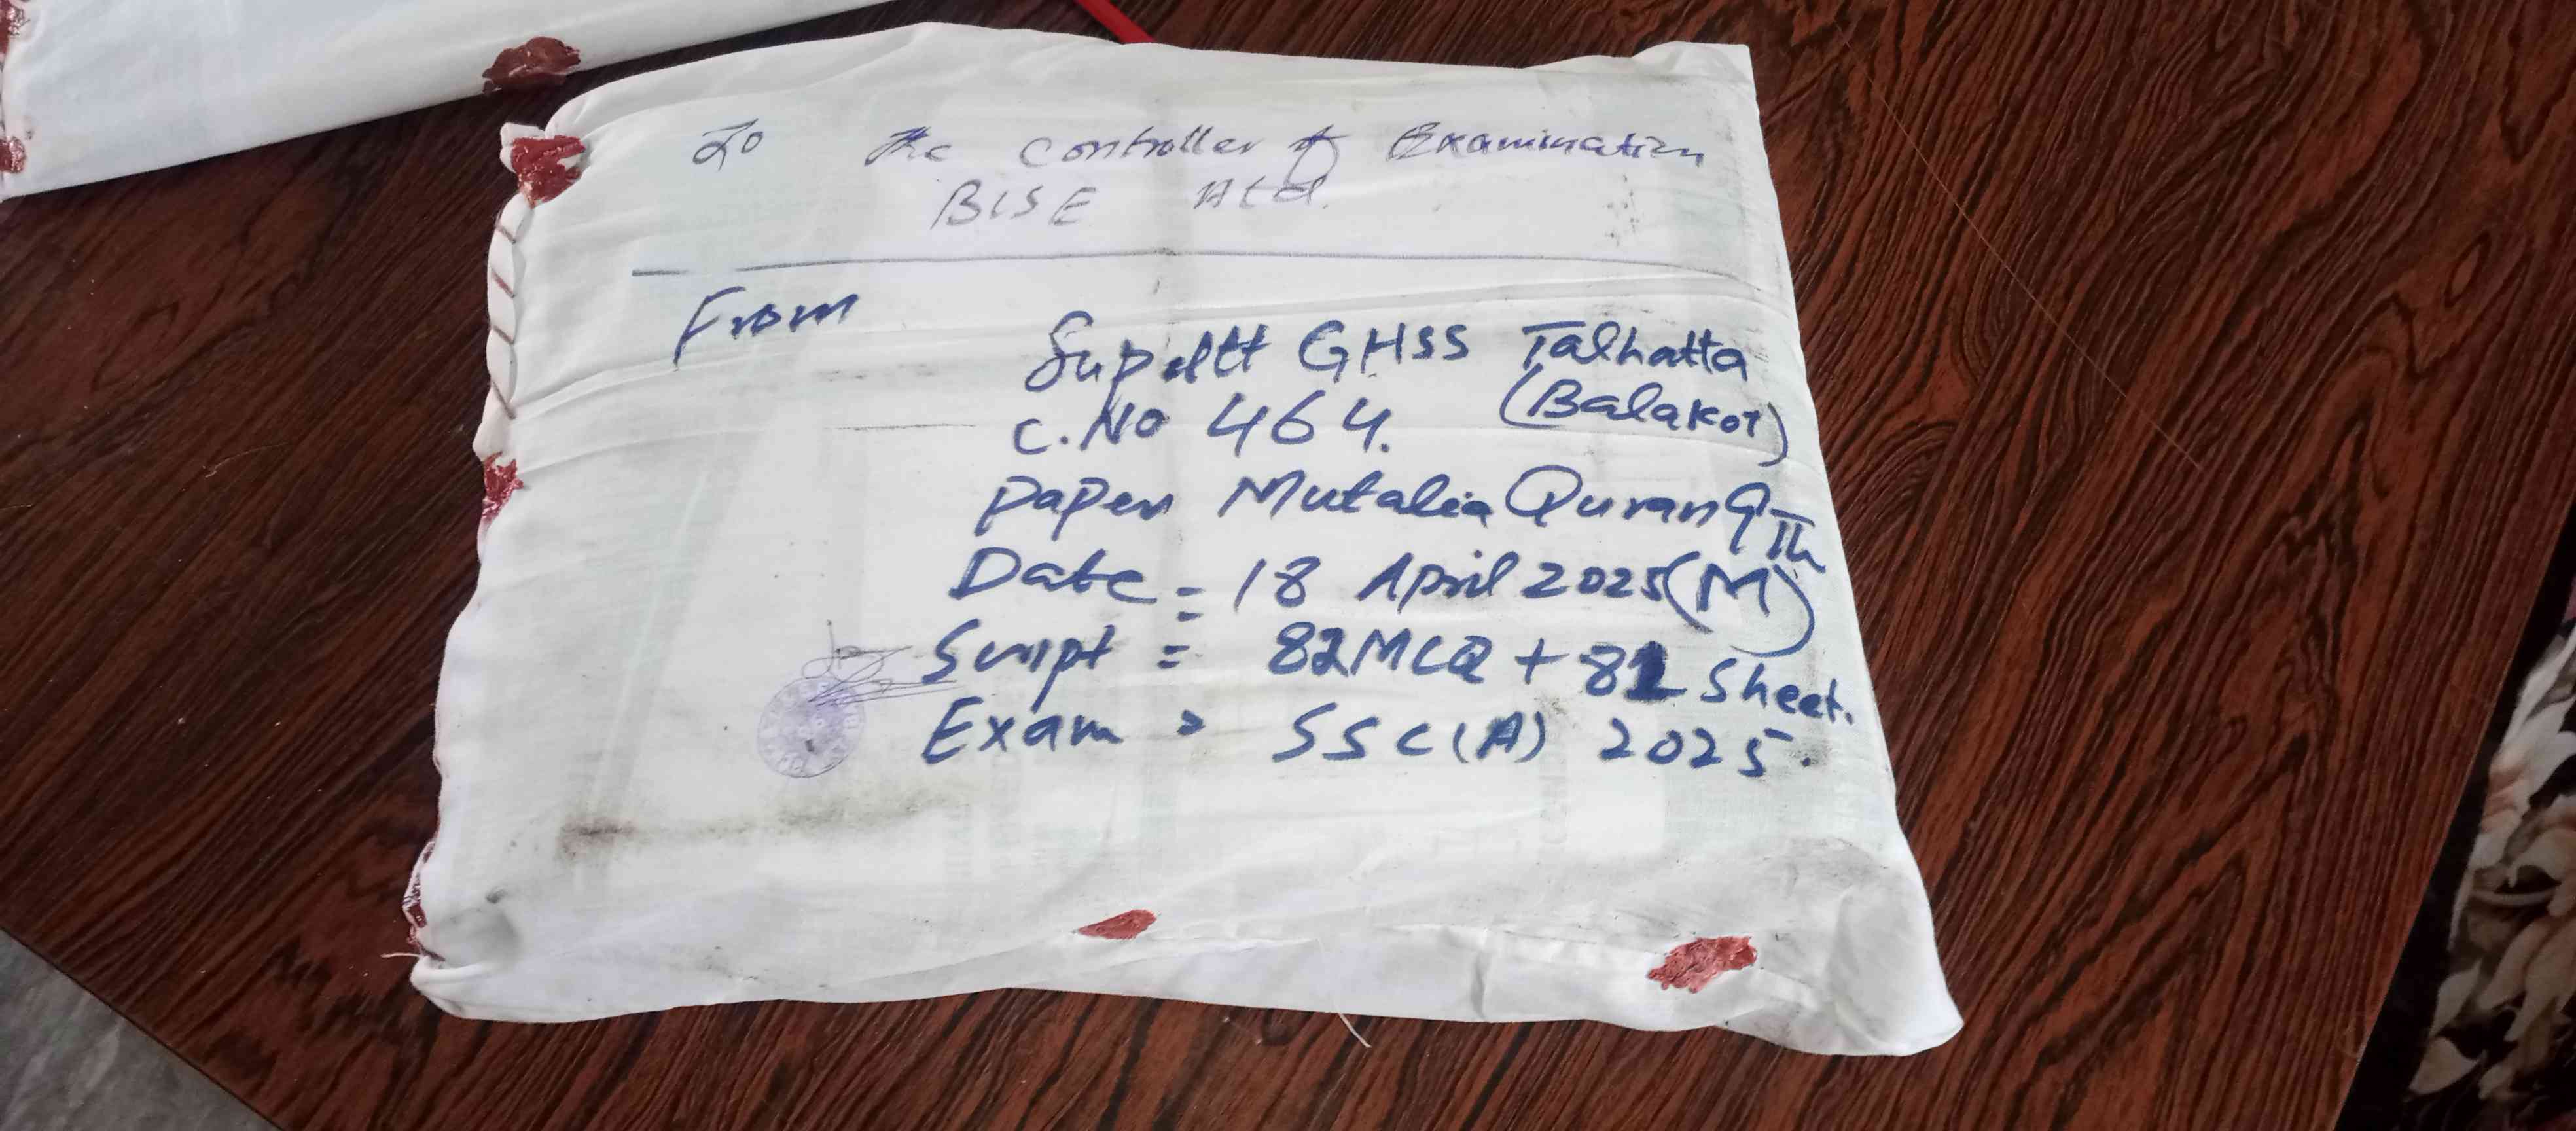 To the Controller of Examination
BISE Atd.
From
Supdtt GHSS Talhatta
(Balakot)
C.No 464.
Paper Mutalia Quran 9th
Date = 18 April 2025(M)
Script = 82MCQ + 82 Sheet.
Exam = SSC(A) 2025.